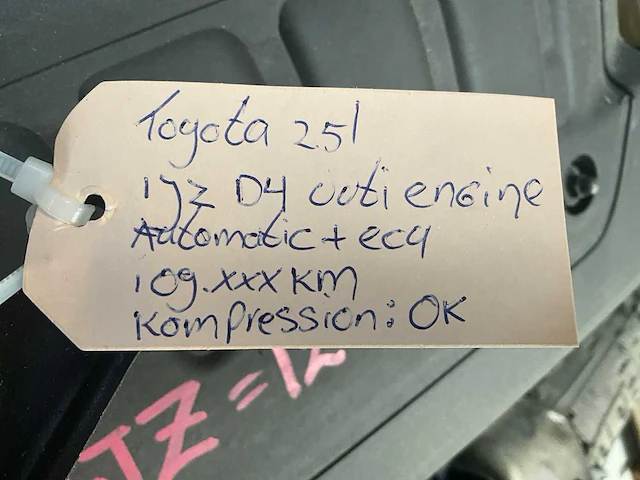 Toyota 2.5l
1jz D4 vvti engine
Automatic + ecu
109.xxx km
Kompression: OK
JZ = 12